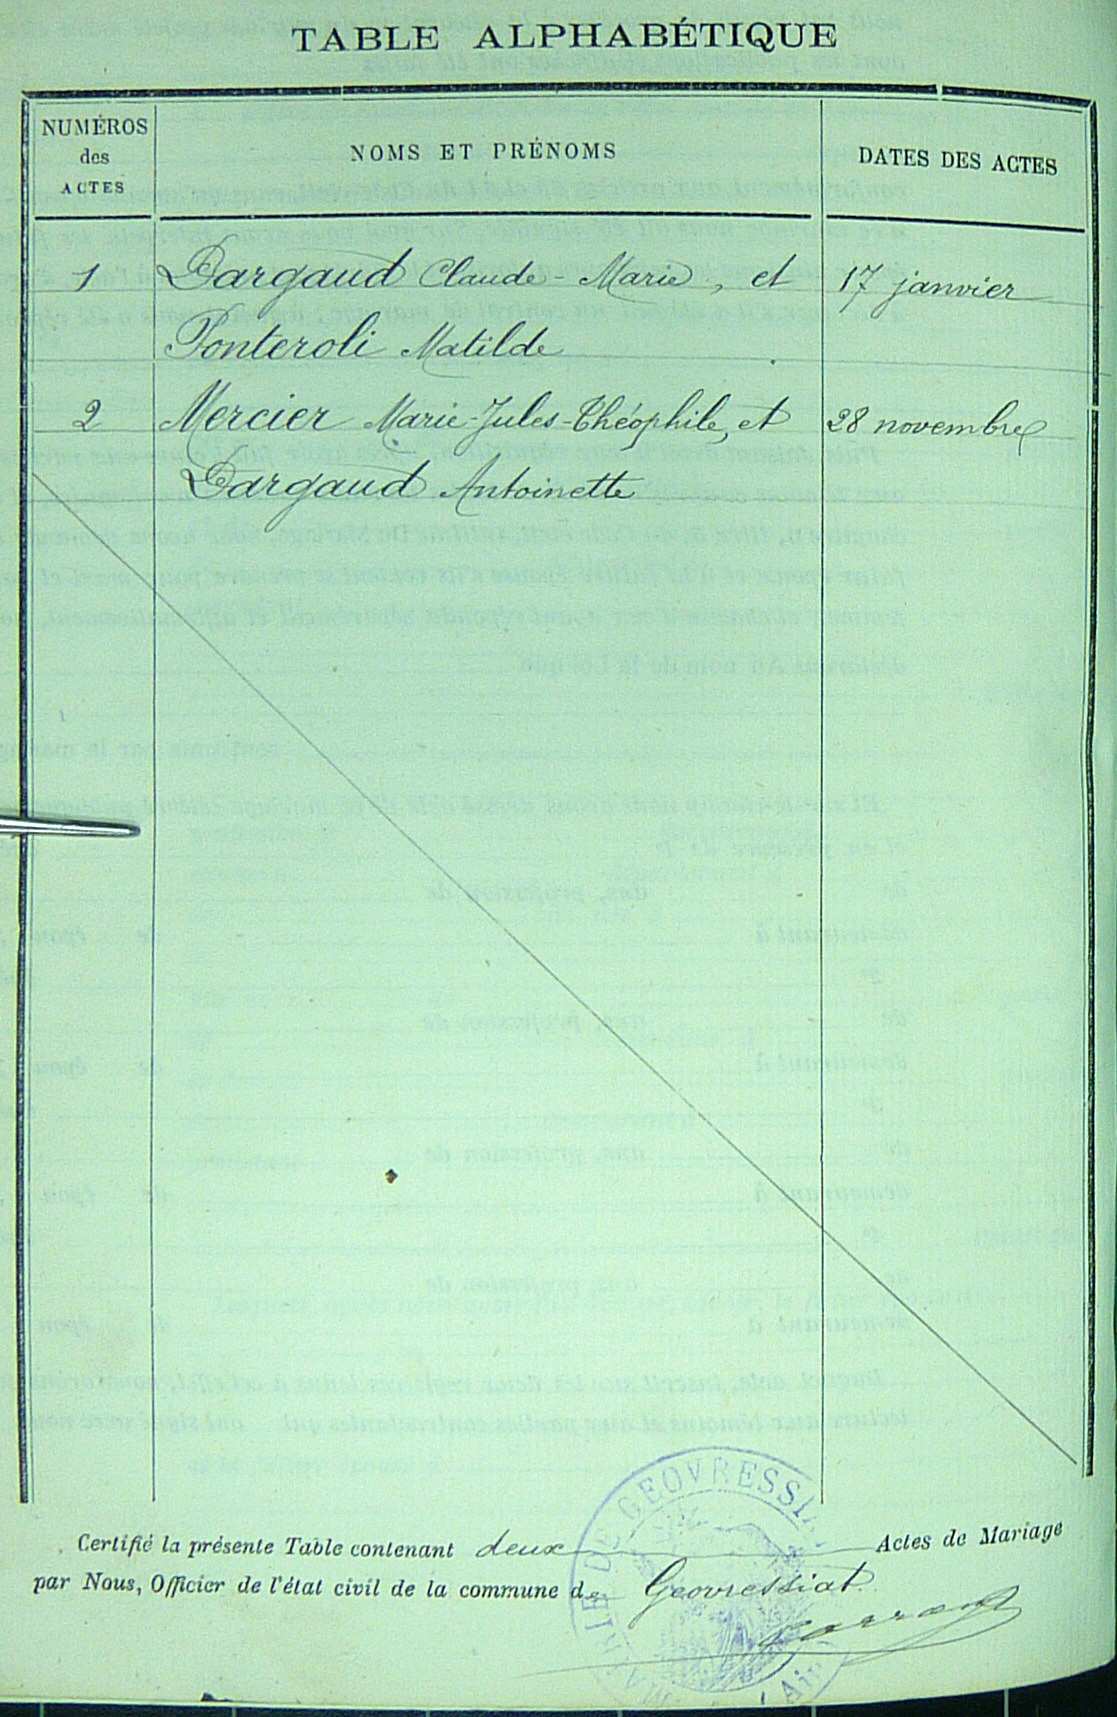 TABLE ALPHABÉTIQUE
NUMÉROS
des
ACTES
NOMS ET PRÉNOMS
DATES DES ACTES
1 Dargaud Claude-Marie, et 17 janvier
Ponteroli Matilde
2 Mercier Marie-Jules-Théophile, et 28 novembre
Dargaud Antoinette
Certifié la présente Table contenant deux Actes de Mariage
par Nous, Officier de l'état civil de la commune de Geovressiat